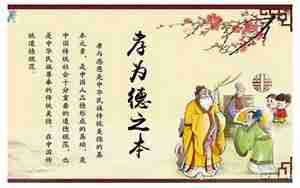 孝为德之本
孝与感恩是中华民族传统美德的基
本元素，是中国人品德形成的基础，是
中国传统社会十分重要的道德规范，也
是中华民族尊奉的传统美德。在中国传
统道德规范。